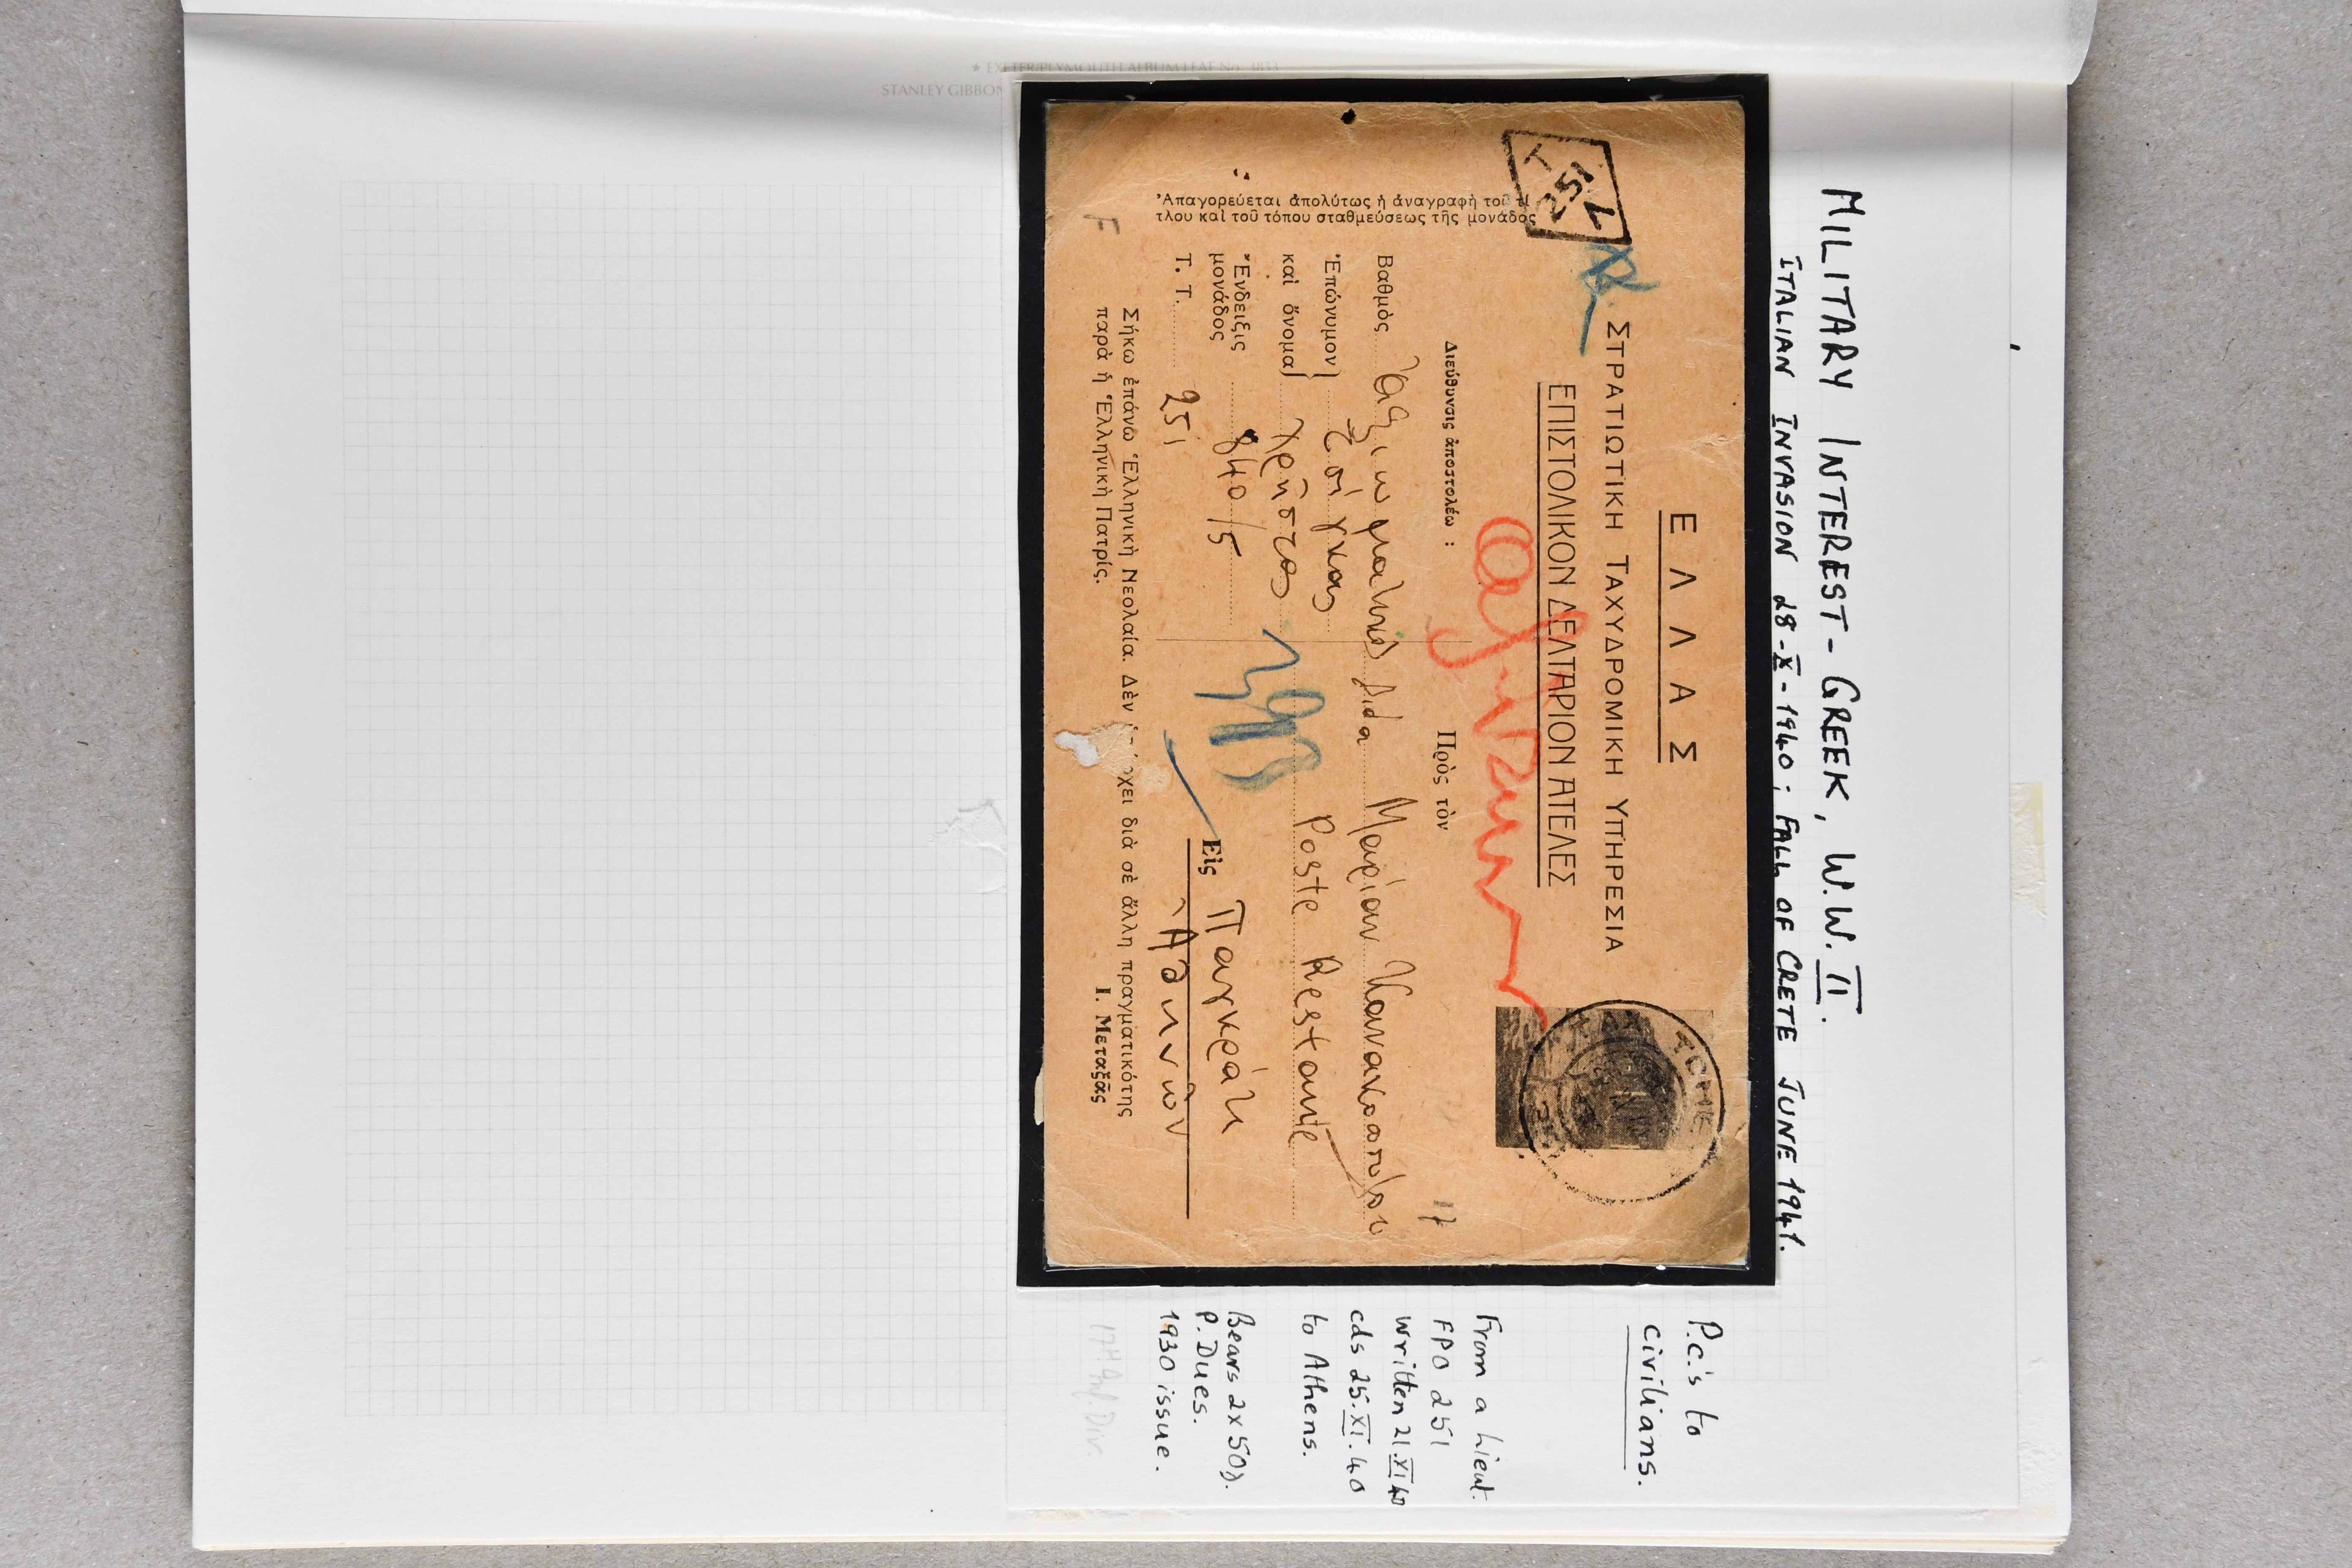 MILITARY INTEREST - GREEK, W.W. II.
ITALIAN INVASION 28-X-1940; FALL OF CRETE JUNE 1941.
ΕΛΛΑΣ
ΣΤΡΑΤΙΩΤΙΚΗ ΤΑΧΥΔΡΟΜΙΚΗ ΥΠΗΡΕΣΙΑ
ΕΠΙΣΤΟΛΙΚΟΝ ΔΕΛΤΑΡΙΟΝ ΑΤΕΛΕΣ
Τ
251
Διεύθυνσις ἀποστολέως :
Βαθμὸς
Ἐπώνυμον
καὶ ὄνομα
Χρῆστος
Ἔνδειξις
μονάδος 840/5
Τ. Τ. 251
Πρὸς τὸν
Δίδα Μαρίαν
Poste Restante
Εἰς Παγκράτι
Ἀθηνῶν
Ἀπαγορεύεται ἀπολύτως ἡ ἀναγραφὴ τοῦ τί
τλου καὶ τοῦ τόπου σταθμεύσεως τῆς μονάδος
Σήκω ἐπάνω Ἑλληνικὴ Νεολαία. Δὲν χει διὰ σὲ ἄλλη πραγματικότης
παρὰ ἡ Ἑλληνικὴ Πατρίς.
Ι. Μεταξᾶς
F
17
P.C.'s to
civilians.
From a Lieut.
FPO 251
Written 21.XI.40
cds 25.XI.40
to Athens.
Bears 2x50λ.
P. Dues.
1930 issue.
17th Inf. Div.
★ EXETER/PLYMOUTH ALBUM LEAF No. 3833
STANLEY GIBBON